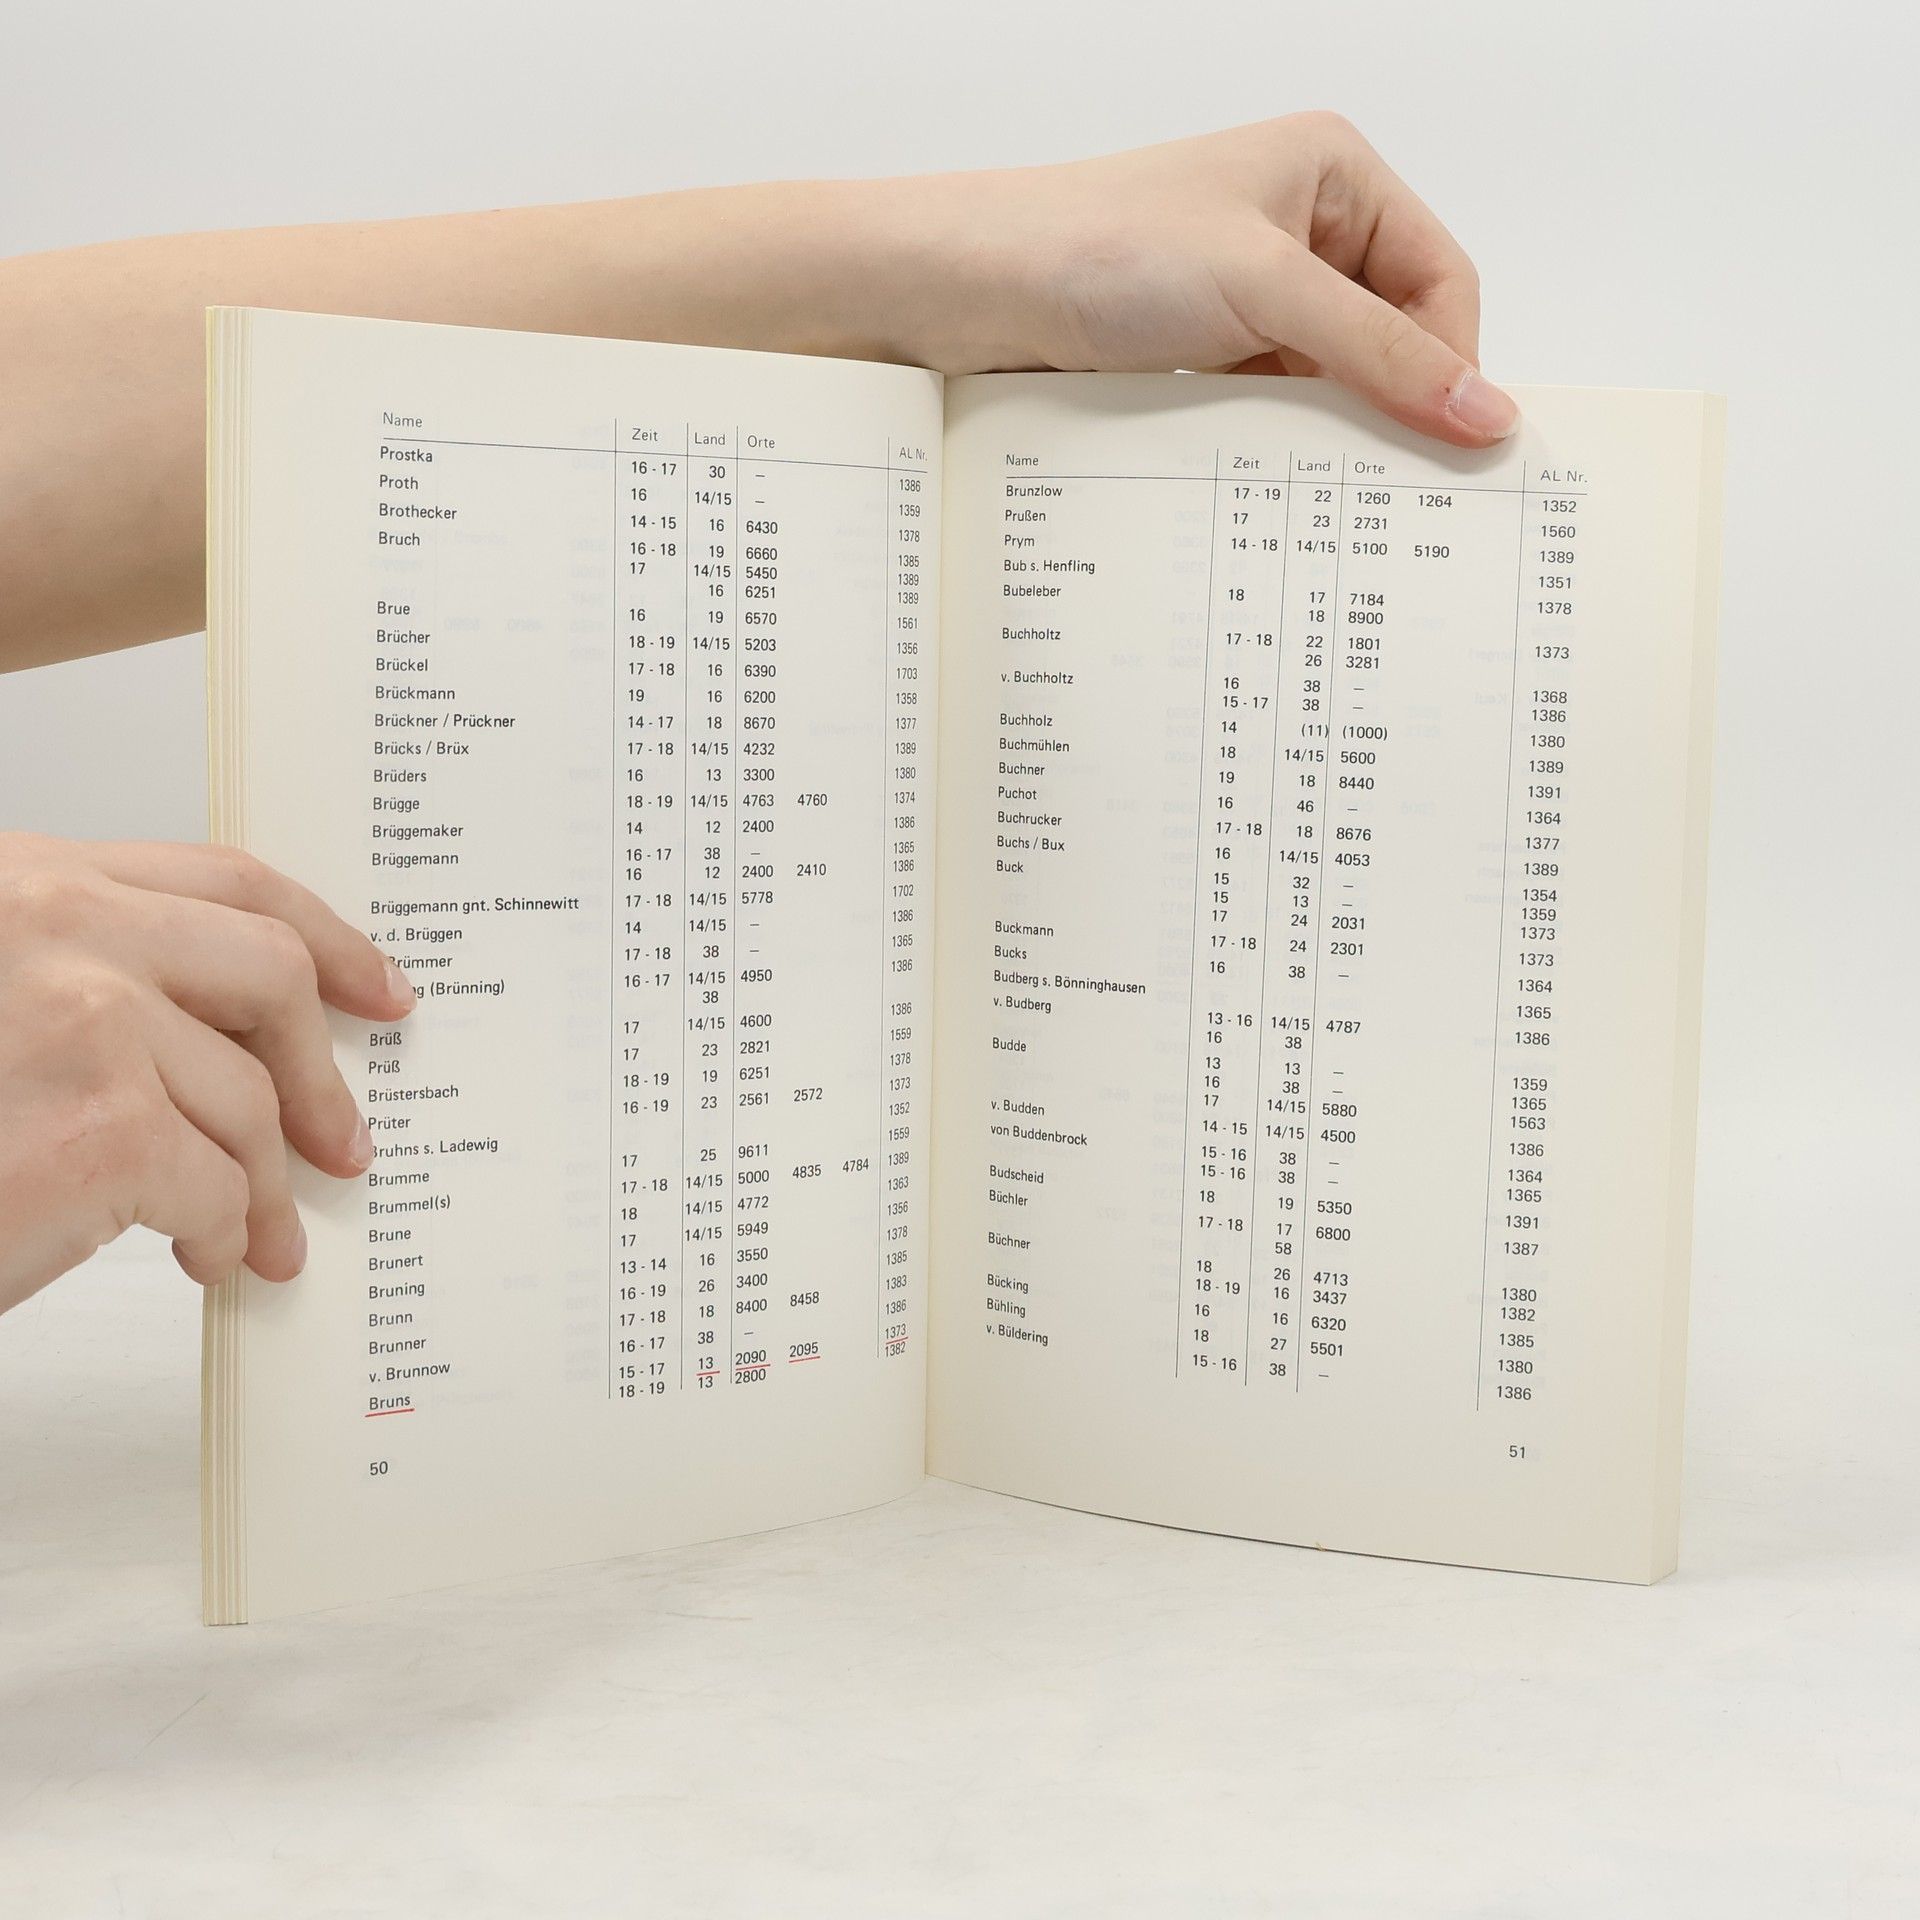 Name Zeit Land Orte AL Nr.
Prostka 16 - 17 30 – 1386
Proth 16 14/15 – 1359
Brothecker 14 - 15 16 6430 1378
Bruch 16 - 18 19 6660 1385
17 14/15 5450 1389
16 6251 1389
Brue 16 19 6570 1561
Brücher 18 - 19 14/15 5203 1356
Brückel 17 - 18 16 6390 1703
Brückmann 19 16 6200 1358
Brückner / Prückner 14 - 17 18 8670 1377
Brücks / Brüx 17 - 18 14/15 4232 1389
Brüders 16 13 3300 1380
Brügge 18 - 19 14/15 4763 4760 1374
Brüggemaker 14 12 2400 1386
Brüggemann 16 - 17 38 – 1365
16 12 2400 2410 1386
Brüggemann gnt. Schinnewitt 17 - 18 14/15 5778 1702
v. d. Brüggen 14 14/15 – 1386
Brümmer 17 - 18 38 – 1365
(Brünning) 16 - 17 14/15 4950 1386
38
Brüß 17 14/15 4600 1386
Prüß 17 23 2821 1559
Brüstersbach 18 - 19 19 6251 1378
Prüter 16 - 19 23 2561 2572 1373
Bruhns s. Ladewig 1352
Brumme 17 25 9611 1559
Brummel(s) 17 - 18 14/15 5000 4835 4784 1389
Brune 18 14/15 4772 1363
Brunert 17 14/15 5949 1356
Bruning 13 - 14 16 3550 1378
Brunn 16 - 19 26 3400 1385
Brunner 17 - 18 18 8400 8458 1383
v. Brunnow 16 - 17 38 – 1386
Bruns 15 - 17 13 2090 2095 1373
18 - 19 13 2800 1382
50
Name Zeit Land Orte AL Nr.
Brunzlow 17 - 19 22 1260 1264 1352
Prußen 17 23 2731 1560
Prym 14 - 18 14/15 5100 5190 1389
Bub s. Henfling 1351
Bubeleber 18 17 7184 1378
18 8900
Buchholtz 17 - 18 22 1801 1373
26 3281
v. Buchholtz 16 38 – 1368
15 - 17 38 – 1386
Buchholz 14 (11) (1000) 1380
Buchmühlen 18 14/15 5600 1389
Buchner 19 18 8440 1391
Puchot 16 46 – 1364
Buchrucker 17 - 18 18 8676 1377
Buchs / Bux 16 14/15 4053 1389
Buck 15 32 – 1354
15 13 – 1359
17 24 2031 1373
Buckmann 17 - 18 24 2301 1373
Bucks 16 38 – 1364
Budberg s. Bönninghausen 1365
v. Budberg 13 - 16 14/15 4787 1386
16 38
Budde 13 13 – 1359
16 38 – 1365
17 14/15 5880 1563
v. Budden 14 - 15 14/15 4500 1386
von Buddenbrock 15 - 16 38 – 1364
15 - 16 38 – 1365
Budscheid 18 19 5350 1391
Büchler 17 - 18 17 6800 1387
58
Büchner 18 26 4713 1380
18 - 19 16 3437 1382
Bücking 16 16 6320 1385
Bühling 18 27 5501 1380
v. Büldering 15 - 16 38 – 1386
51